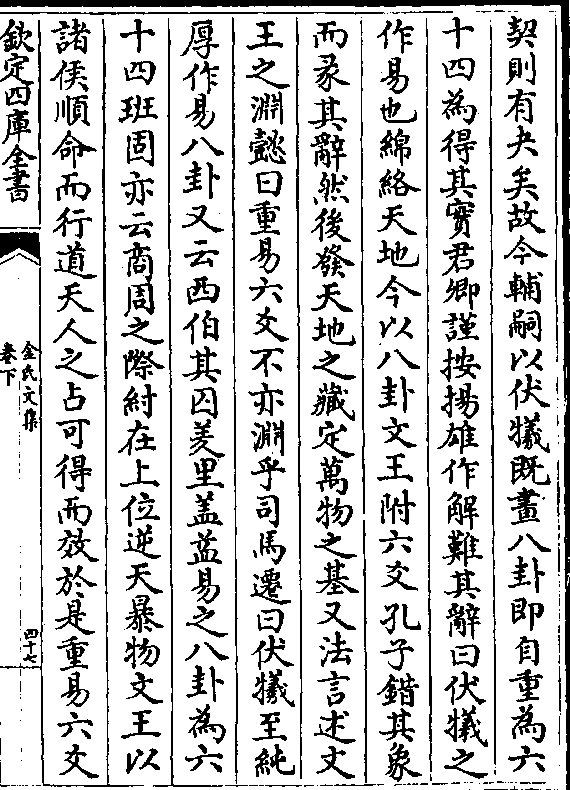 契則有夬矣故今輔嗣以伏犧既畫八卦即自重為六
十四為得其實君卿謹按揚雄作解難其辭曰伏犧之
作易也綿絡天地今以八卦文王附六爻孔子錯其象
而彖其辭然後發天地之藏定萬物之基又法言述文
王之淵懿曰重易六爻不亦淵乎司馬遷曰伏犧至純
厚作易八卦又云西伯其囚羑里盖益易之八卦為六
十四班固亦云商周之際紂在上位逆天暴物文王以
諸侯順命而行道天人之占可得而效於是重易六爻
欽定四庫全書
金氏文集
卷下
四十七